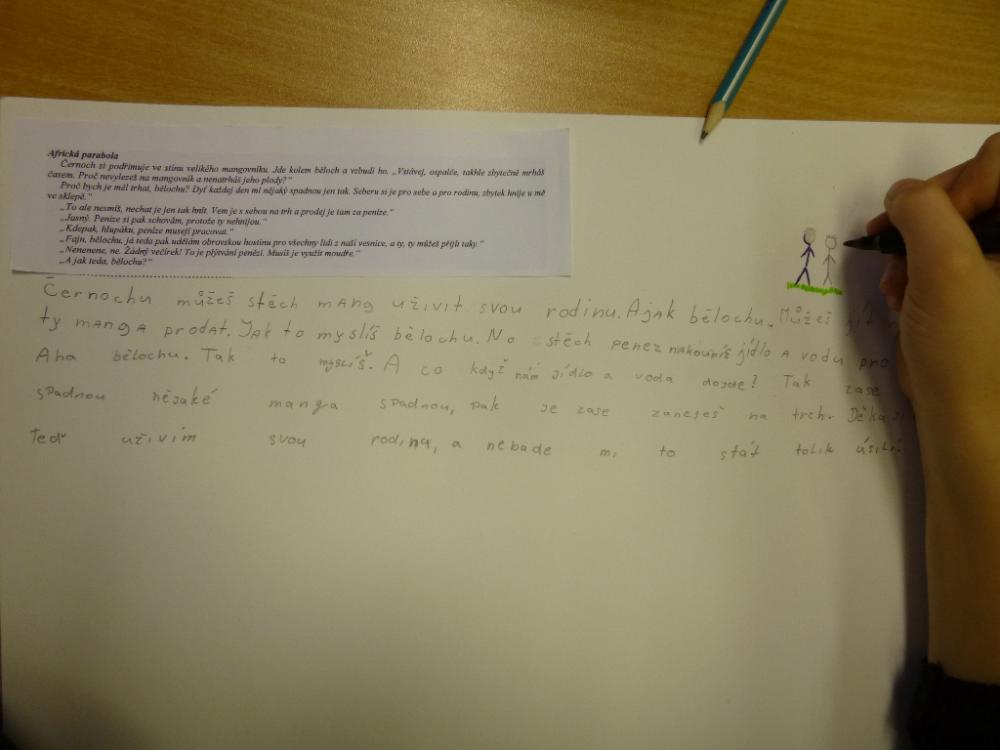 Africká parabola
Černoch si podřimuje ve stínu velikého mangovníku. Jde kolem běloch a vzbudí ho. „Vstávej, ospalče, takhle zbytečně mrháš
časem. Proč nevylezeš na mangovník a nenatrháš jeho plody?“
Proč bych je měl trhat, bělochu? Dyť každej den mi nějaký spadnou jen tak. Seberu si je pro sebe a pro rodinu, zbytek hnije u mě
ve sklepě.“
„To ale nesmíš, nechat je jen tak hnít. Vem je s sebou na trh a prodej je tam za peníze.“
„Jasný. Peníze si pak schovám, protože ty nehnijou.“
„Kdepak, hlupáku, peníze musejí pracovat.“
„Fajn, bělochu, já teda pak udělám obrovskou hostinu pro všechny lidi z naší vesnice, a ty, ty můžeš přijít taky.“
„Nenenene, ne. Žádný večírek! To je plýtvání penězi. Musíš je využít moudře.“
„A jak teda, bělochu?“
Černochu můžeš stěch mang uživit svou rodinu. A jak bělochu. Můžeš jít
ty manga prodat. Jak to myslíš bělochu. No stěch penez nakoupíš jídlo a vodu pro
Aha bělochu. Tak to myslíš. A co když nám jídlo a voda dojde? Tak zase
spadnou nějaké manga spadnou, pak je zase zaneseš na trch.
Teď uživím svou rodinu, a nebade mi to stát tolik úsilí.